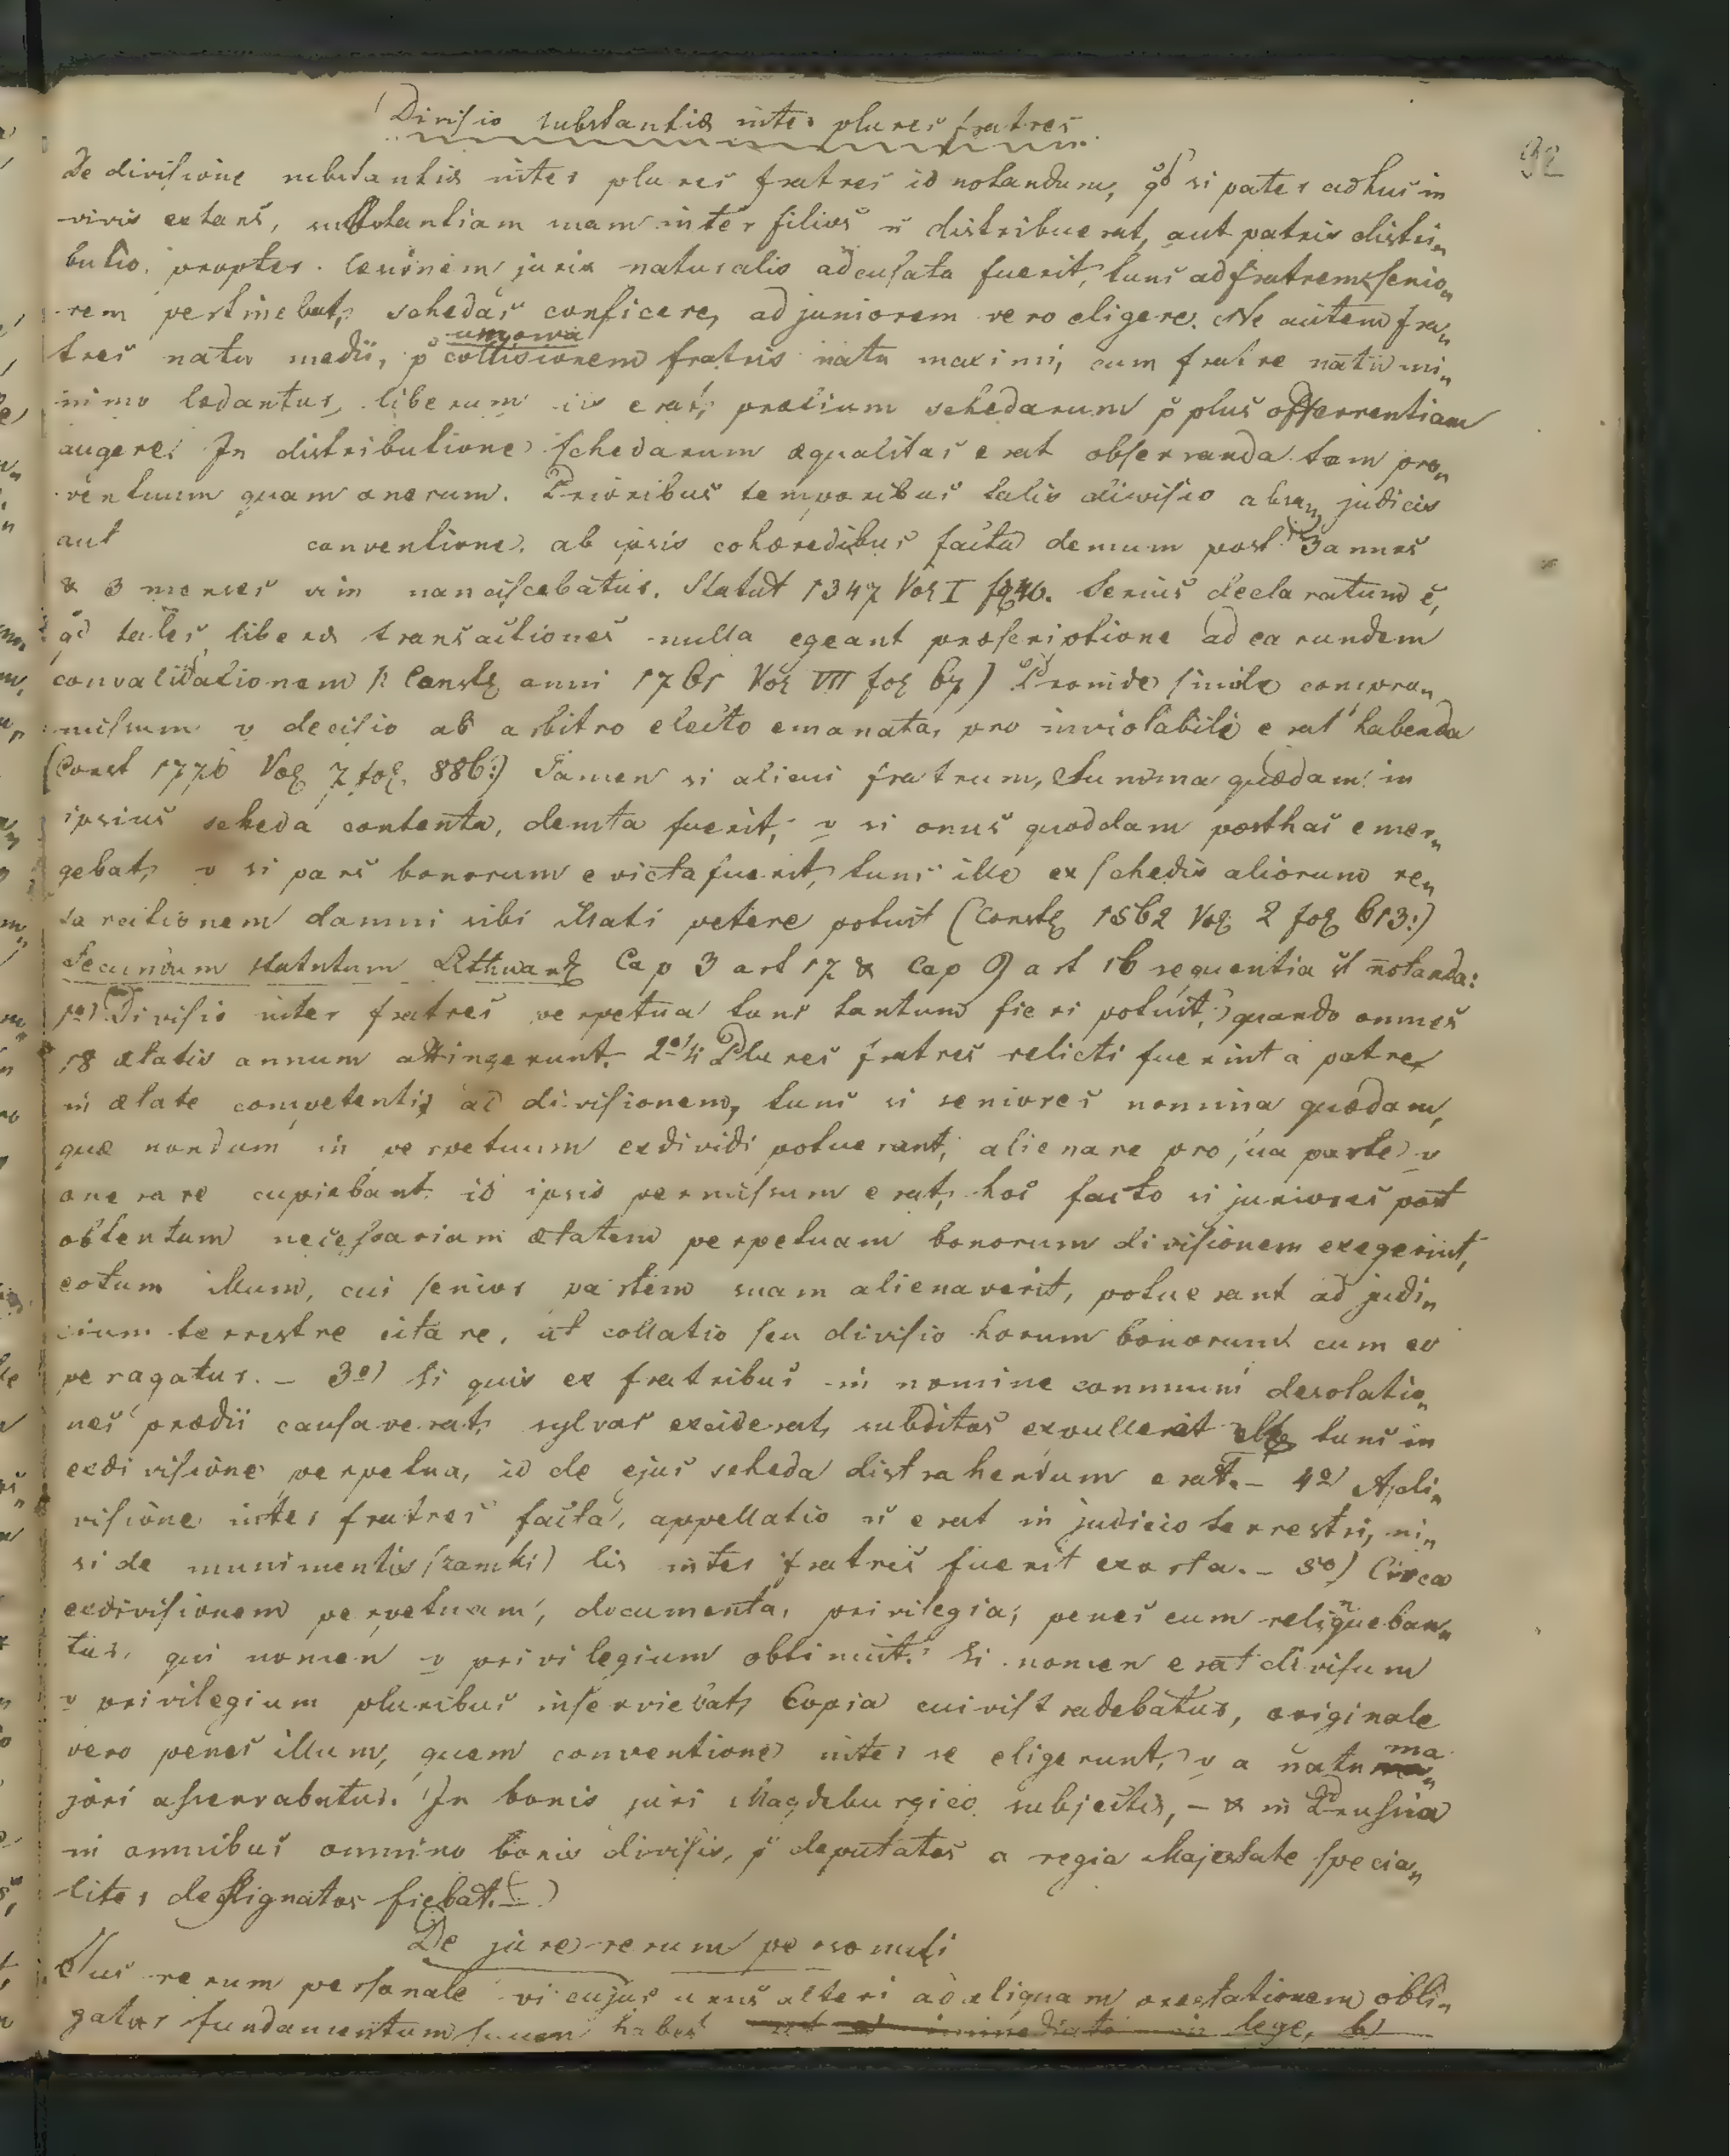 Divisio substantiæ inter plures fratres
92
De divisione substantiæ inter plures fratres id notandum, qd si pater adhuc in
vivis extans, substantiam suam inter filios ñ distribuerat, aut patris distri„
butio, propter læsionem juris naturalis adcusata fuerit, tunc ad fratrem senio„
rem pertinebat, schedas conficere, ad juniorem vero eligere. Ne autem fra„
umowa
tres natu medii, p collisionem fratris natu maximi, cum fratre natu mi„
nimo lædantur, liberum iis erat, prælium schedarum p plus offerrentiam
augere. In distributione schedarum æqualitas erat observanda tam pro„
ventuum quam onerum. Prioribus temporibus talis divisio absq judicis
aut conventione, ab ipsis cohæredibus facta demum post 3 annos
& 3 menses vim nanciscebatur. Statut 1347 Vol I fol 40. Serius declaratum ẽ,
qd tales liberæ transactiones nulla egeant præscriptione ad earundem
convalidationem /: Constꝫ anni 1761 Vol VII fol 67) Proinde simile compro„
missum v decisio ab arbitro electo emanata, pro inviolabili erat habenda
(Const 1776 Vol 7 fol. 886:) Tamen si alicui fratrum, Summa quædam in
ipsius scheda contenta, demta fuerit, v si onus quoddam posthac emer„
gebat, v si pars bonorum evicta fuerit, tunc ille ex schedis aliorum re„
sarcitionem damni sibi illati petere potuit (Constꝫ 1562 Vol 2 fol 613:)
Secundum statutum Lithuanꝫ Cap 3 art 17 & Cap 9 art 16 sequentia st notanda:
1o) Divisio inter fratres perpetua tunc tantum fieri potuit, quando omnes
18 ætatis annum attingerunt. 2o Si Plures fratres relicti fuerint a patre
in ætate competenti ad divisionem, tunc si seniores nomina quædam,
quæ nondum in perpetuum exdividi potuerant, alienare pro sua parte v
onerare cupiebant id ipsis permissum erat, hoc facto si juniores post
obtentum necessariam ætatem perpetuam bonorum divisionem exegerint,
eotum illum, cui senior partem suam alienaverit, potuerant ad judi„
cium terrestre citare, ut collatio seu divisio horum bonorum cum eo
peragatur. – 3o) Si quis ex fratribus in nomine communi desolatio„
nes prædii causaverat, sylvas exciderat, subditos expullerit tunc in
exdivisione perpetua, id de ejus scheda distrahendum erat. – 4o A di„
visione inter fratres facta, appellatio ñ erat in judicio terrestri, ni„
si de munimentis (zamki) lis inter fratres fuerit exorta. – 5o) Circa
exdivisionem perpetuam, documenta, privilegia, penes eum relinqueban„
tur, qui nomen v privilegium obtinuit. Si nomen erat divisum
v privilegium pluribus inserviebat, Copia cuivis tradebatur, originale
vero penes illum, quem conventione inter se eligerunt, v a natu ma„
jori asservabatur. In bonis juri Magdeburgico subjectis, – & in Prussia
in omnibus omnino bonis divisio, p deputatos a regia Majestate specia„
liter designatos fiebat. –
De jure rerum personali
Jus rerum personale vi cujus unus alteri ad aliquam præstationem obli„
gatur fundamentum suum habet immediate in lege, b